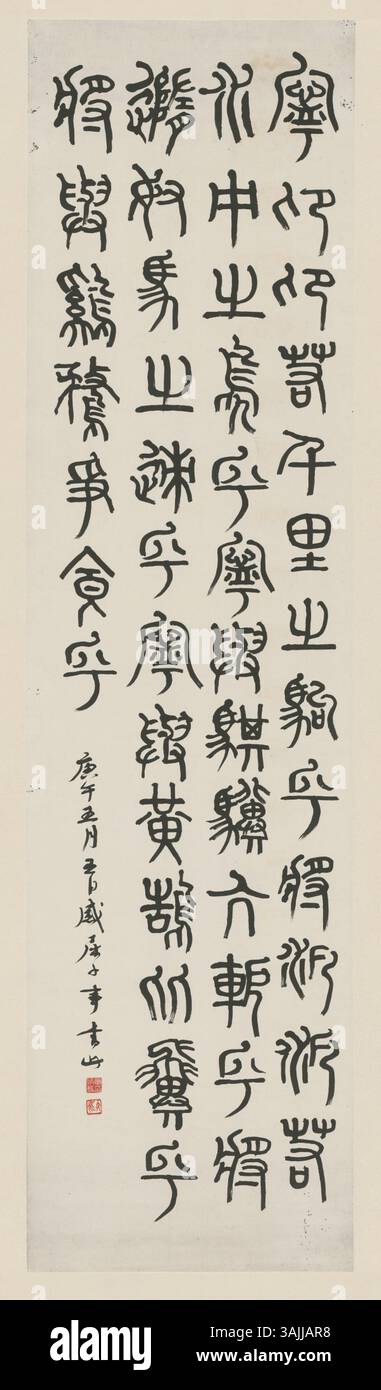 寧卬卬若千里之駒乎將汎汎若
水中之鳧乎寧與騏驥亢軛乎將
隨奴馬之迹乎寧與黃鵠比翼乎
將與雞鶩爭食乎
庚午五月五日感屈子事書此
alamy
Image ID: 3AJJAR8
www.alamy.com